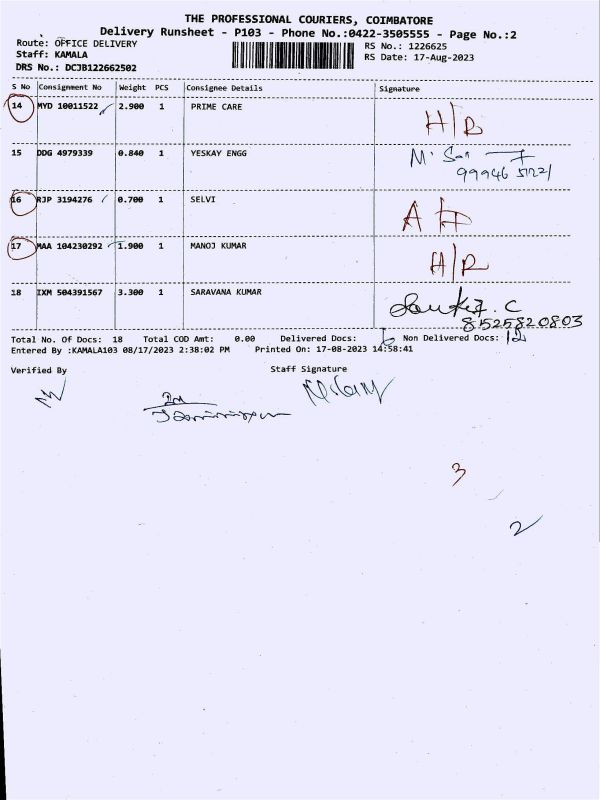 THE PROFESSIONAL COURIERS, COIMBATORE
Delivery Runsheet - P103 - Phone No.:0422-3505555 - Page No.:2
Route: OFFICE DELIVERY
RS No.: 1226625
Staff: KAMALA
RS Date: 17-Aug-2023
DRS No.: DCJB122662502
S No Consignment No Weight PCS Consignee Details Signature
14 MYD 10011522 2.900 1 PRIME CARE H/R
15 DDG 4979339 0.840 1 YESKAY ENGG
16 RJP 3194276 0.700 1 SELVI
17 MAA 104230292 1.900 1 MANOJ KUMAR H/R
18 IXM 504391567 3.300 1 SARAVANA KUMAR
8525820803
Total No. Of Docs: 18 Total COD Amt: 0.00 Delivered Docs: 6 Non Delivered Docs: 12
Entered By :KAMALA103 08/17/2023 2:38:02 PM Printed On: 17-08-2023 14:58:41
Verified By Staff Signature
3
2